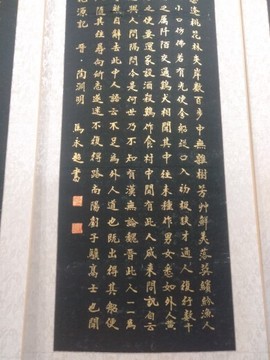 逢桃花林夹岸數百步中無雜樹芳艸鮮美落英繽紛漁人
小口仿佛若有光便舍船從口入初極狹才通人復行數十
之屬阡陌交通鷄犬相聞其中往來種作男女悉如外人黄
之便要還家設酒殺鷄作食村中聞有此人咸來問訊自云
與人間隔問今是何世乃不知有漢無論魏晋此人一一為
日辭去此中人語云不足為外人道也既出得其船便
隨其往尋向所志遂迷不復得路南陽劉子驥高士也聞
花源記 晋·陶淵明 馬永超書